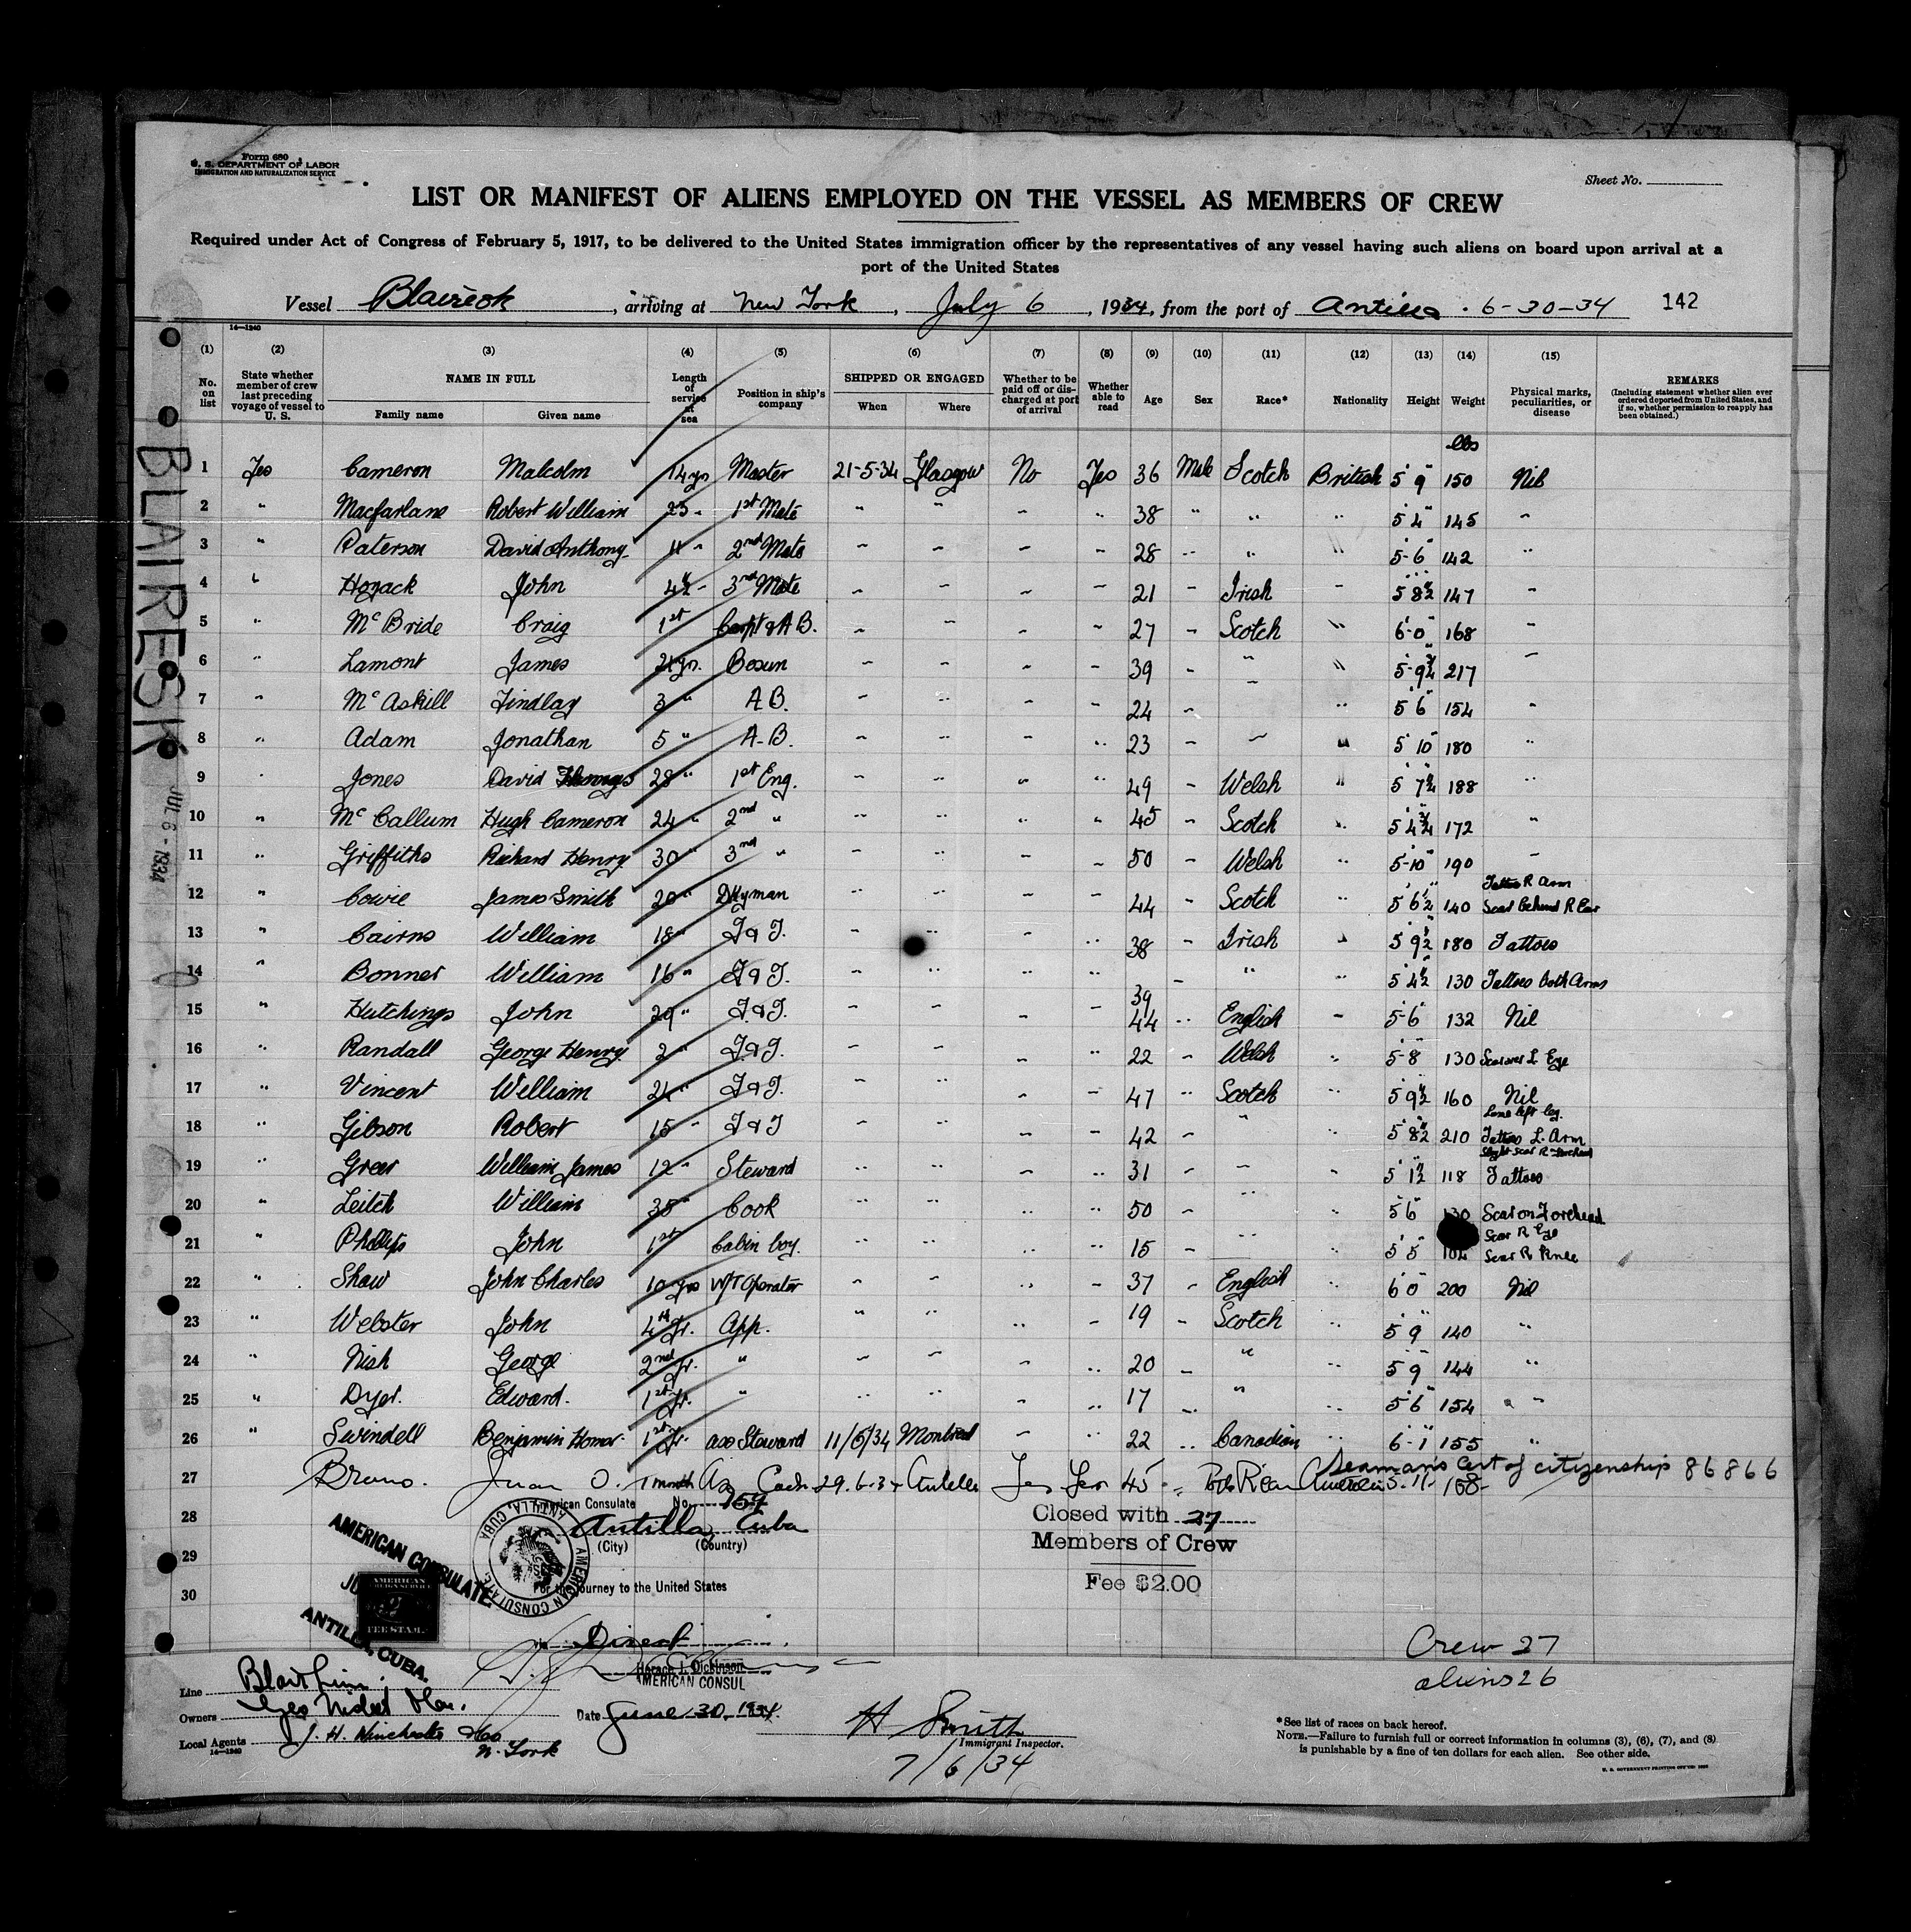 Form 680
U. S. DEPARTMENT OF LABOR
IMMIGRATION AND NATURALIZATION SERVICE
Sheet No.
LIST OR MANIFEST OF ALIENS EMPLOYED ON THE VESSEL AS MEMBERS OF CREW
Required under Act of Congress of February 5, 1917, to be delivered to the United States immigration officer by the representatives of any vessel having such aliens on board upon arrival at a
port of the United States
Vessel Blairesk, arriving at New York, July 6 1934, from the port of Antilla. 6-30-34 142
14—1240
(1) (2) (3) (4) (5) (6) (7) (8) (9) (10) (11) (12) (13) (14) (15)
No. on list State whether member of crew last preceding voyage of vessel to U. S. NAME IN FULL Family name Given name Length of service at sea Position in ship's company SHIPPED OR ENGAGED When Where Whether to be paid off or discharged at port of arrival Whether able to read Age Sex Race* Nationality Height Weight Physical marks, peculiarities, or disease REMARKS (Including statement whether alien ever ordered deported from United States, and if so, whether permission to reapply has been obtained.)
lbs
1 Yes Cameron Malcolm 14 yrs Master 21-5-34 Glasgow No Yes 36 Male Scotch British 5' 9" 150 Nil
2 " Macfarlane Robert William 23 " 1st Mate " " " " 38 " " " 5' 4" 145 "
3 " Paterson David Anthony 11 " 2nd Mate " " " " 28 " " " 5-6 142 "
4 " Hozack John 4½ " 3rd Mate " " " " 21 " Irish " 5 8½ 147 "
5 " McBride Craig 1st Carpt & A.B. " " " " 27 " Scotch " 6-0 168 "
6 " Lamont James 21 yrs. Bosun " " " " 39 " " " 5-9¾ 217 "
7 " McAskill Findlay 3 " A.B. " " " " 24 " " " 5 6 154 "
8 " Adam Jonathan 5 " A-B. " " " " 23 " " " 5 10 180 "
9 " Jones David 28 " 1st Eng. " " " " 49 " Welsh " 5 7¾ 188 "
10 " McCallum Hugh Cameron 24 " 2nd " " " " " 45 " Scotch " 5 4¾ 172 "
11 " Griffiths Richard Henry 30 " 3rd " " " " " 50 " Welsh " 5-10 190 "
12 " Cowie James Smith 20 " Dkyman " " " " 44 " Scotch " 5 6½ 140 Tattoo R Arm Scar behind R Ear
13 " Cairns William 18 " F & T. " " " " 38 " Irish " 5 9½ 180 Tattoos
14 " Bonner William 16 " F & T. " " " " 39 " " " 5 4½ 130 Tattoos both Arms
15 " Hutchings John 29 " F & T. " " " " 44 " English " 5-6 132 Nil
16 " Randall George Henry 2 " F & T. " " " " 22 " Welsh " 5-8 130 Scar over L Eye
17 " Vincent William 24 " F & T. " " " " 47 " Scotch " 5 9½ 160 Nil
18 " Gibson Robert 15 " F & T " " " " 42 " " " 5 8½ 210 Lame left leg. Tattoo L. Arm Slight scar R forehead
19 " Greer William James 12 " Steward " " " " 31 " " " 5 1½ 118 Tattoos
20 " Leitch William 35 " Cook " " " " 50 " " " 5 6 130 Scar on Forehead
21 " Phillips John 1st Cabin boy. " " " " 15 " " " 5 5 104 Scar R Eye Scar R Knee
22 " Shaw John Charles 10 yrs W/T Operator " " " " 37 " English " 6 0 200 Nil
23 " Webster John 4th yr. App. " " " " 19 " Scotch " 5 9 140 "
24 " Nish George 2nd yr. " " " " " 20 " " " 5 9 144 "
25 " Dyer. Edward. 1st yr. " " " " " 17 " " " 5-6 154 "
26 " Swindell Benjamin Homer 1st yr. ass Steward 11/6/34 Montreal " " 22 " Canadian " 6-1 155 "
27 Bruno. Juan O. 1 month As Cook 29.6.34 Antilla Yes Yes 45 " Porto Rican American 5-11 168- Seaman's Cert of citizenship 86866
28
29
30
BLAIRESK
JUL 6 - 1934
American Consulate No. 159
Antilla, Cuba
(City) (Country)
For the journey to the United States
AMERICAN CONSULATE ANTILLA, CUBA
AMERICAN CONSULATE
ANTILLA, CUBA.
AMERICAN FOREIGN SERVICE 2 FEE STAMP
Closed with 27
Members of Crew
Fee $2.00
Direct
Horace J. Dickinson
AMERICAN CONSUL
Date June 30, 1934.
Crew 27
aliens 26
Line Blair Line
Owners Geo Nisbet & Co.
Local Agents J. H. Winchester & Co
N. York
14—1240
H Smith
Immigrant Inspector.
7/6/34
*See list of races on back hereof.
NOTE.—Failure to furnish full or correct information in columns (3), (6), (7), and (8)
is punishable by a fine of ten dollars for each alien. See other side.